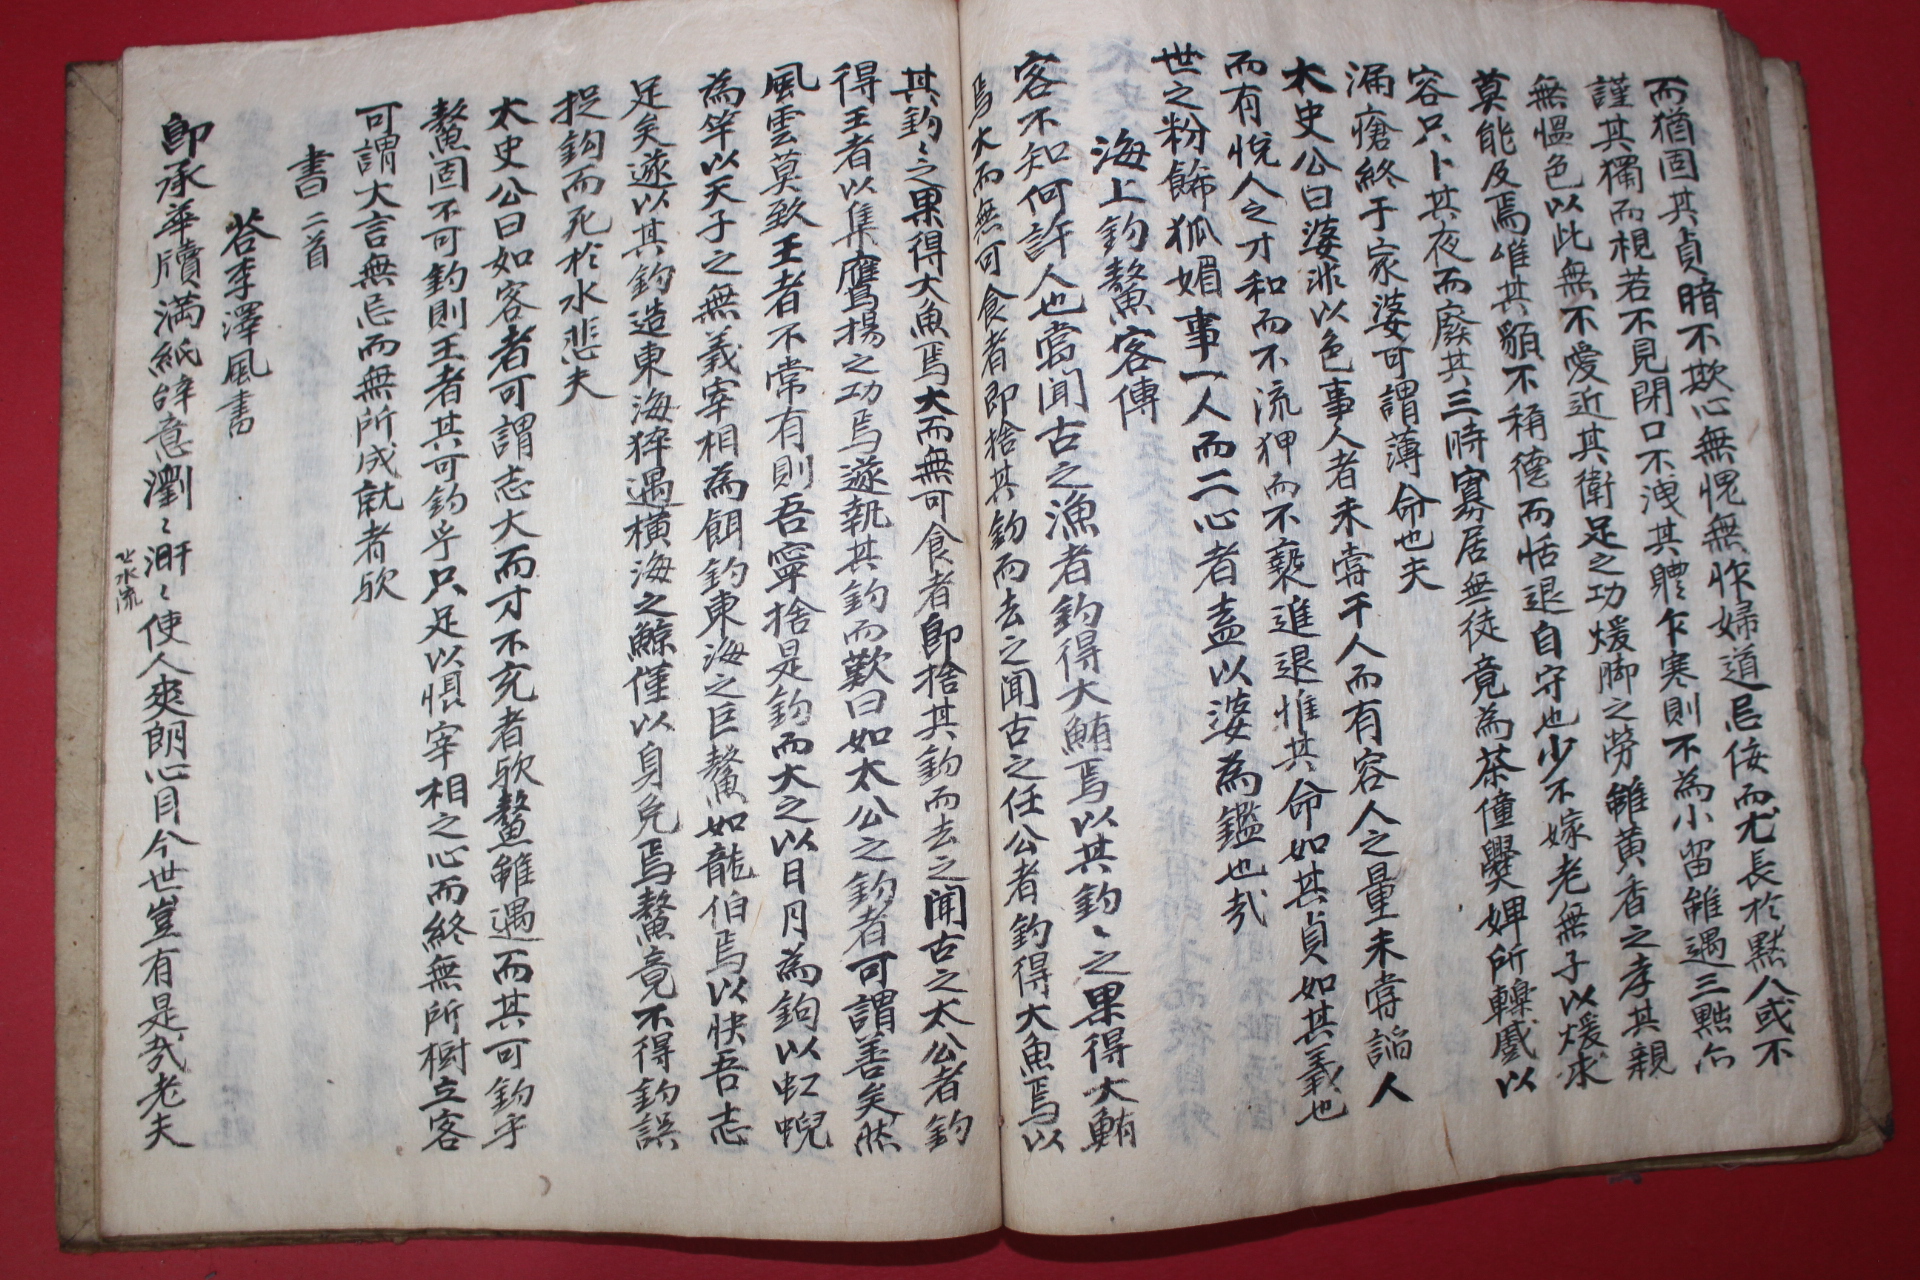 而猶固其貞暗不欺心無愧無怍婦道忌佞而尤長於默人或不
謹其獨而視若不見閉口不洩其體乍寒則不為小留雖遇三黜尒
無慍色以此無不愛近其衛足之功煖脚之勞雖黃香之孝其親
莫能及焉惟其貌不稱德而恬退自守也少不嫁老無子以煖求
容只卜其夜而廢其三時寡居無徒竟為茶僮爨婢所轢戱以
漏瘡終于家婆可謂薄命也夫
太史公曰婆非以色事人者未嘗干人而有容人之量未嘗謟人
而有悅人之才和而不流狎而不褻進退惟其命如其貞如其義也
世之粉餙狐媚事一人而二心者盍以婆為鑑也㢤
海上釣鰲客傳
客不知何許人也嘗聞古之漁者釣得大鮪焉以其釣〻之果得大鮪
焉大而無可食者即捨其釣而去之聞古之任公者釣得大魚焉以
其釣〻之果得大魚焉大而無可食者即捨其釣而去之聞古之太公者釣
得王者以集鷹揚之功焉遂執其釣而歎曰如太公之釣者可謂善矣然
風雲莫致王者不常有則吾寧捨是釣而大之以日月為鉤以虹蜺
為竿以天子之無義宰相為餌釣東海之巨鰲如龍伯焉以快吾志
足矣遂以其釣造東海猝遇橫海之鯨僅以身免焉鰲竟不得釣誤
捉鉤而死於水悲夫
太史公曰如客者可謂志大而才不充者欤鰲雖遇而其可釣乎
鰲固不可釣則王者其可釣乎只足以惧宰相之心而終無所樹立客
可謂大言無忌而無所成就者欤
書 二首
答李澤風書
即承華牘滿紙辞意瀏〻汧〻使人爽朗心目今世豈有是㢤老夫
水流